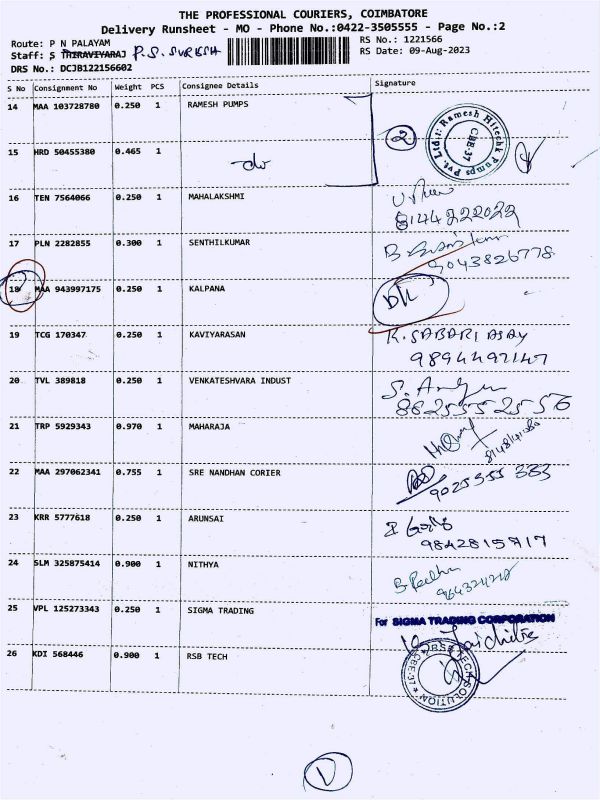 THE PROFESSIONAL COURIERS, COIMBATORE
Delivery Runsheet - MO - Phone No.:0422-3505555 - Page No.:2
Route: P N PALAYAM
RS No.: 1221566
Staff: S THIRAVIYARAJ P.S. SURESH
RS Date: 09-Aug-2023
DRS No.: DCJB122156602
S No Consignment No Weight PCS Consignee Details Signature
14 MAA 103728780 0.250 1 RAMESH PUMPS
2
Ramesh Hitechk Pumps Pvt. Ltd. CBE-37
15 HRD 50455380 0.465 1 -do
16 TEN 7564066 0.250 1 MAHALAKSHMI
8144222022
17 PLN 2282855 0.300 1 SENTHILKUMAR
9043826778
18 MAA 943997175 0.250 1 KALPANA
D/L
19 TCG 170347 0.250 1 KAVIYARASAN
K. SABARI AJAY
9894492147
20 TVL 389818 0.250 1 VENKATESHVARA INDUST
21 TRP 5929343 0.970 1 MAHARAJA
22 MAA 297062341 0.755 1 SRE NANDHAN CORIER
9025555333
23 KRR 5777618 0.250 1 ARUNSAI
24 SLM 325875414 0.900 1 NITHYA
25 VPL 125273343 0.250 1 SIGMA TRADING
For SIGMA TRADING CORPORATION
26 KDI 568446 0.900 1 RSB TECH
RSB TECH SOLUTION CBE-37